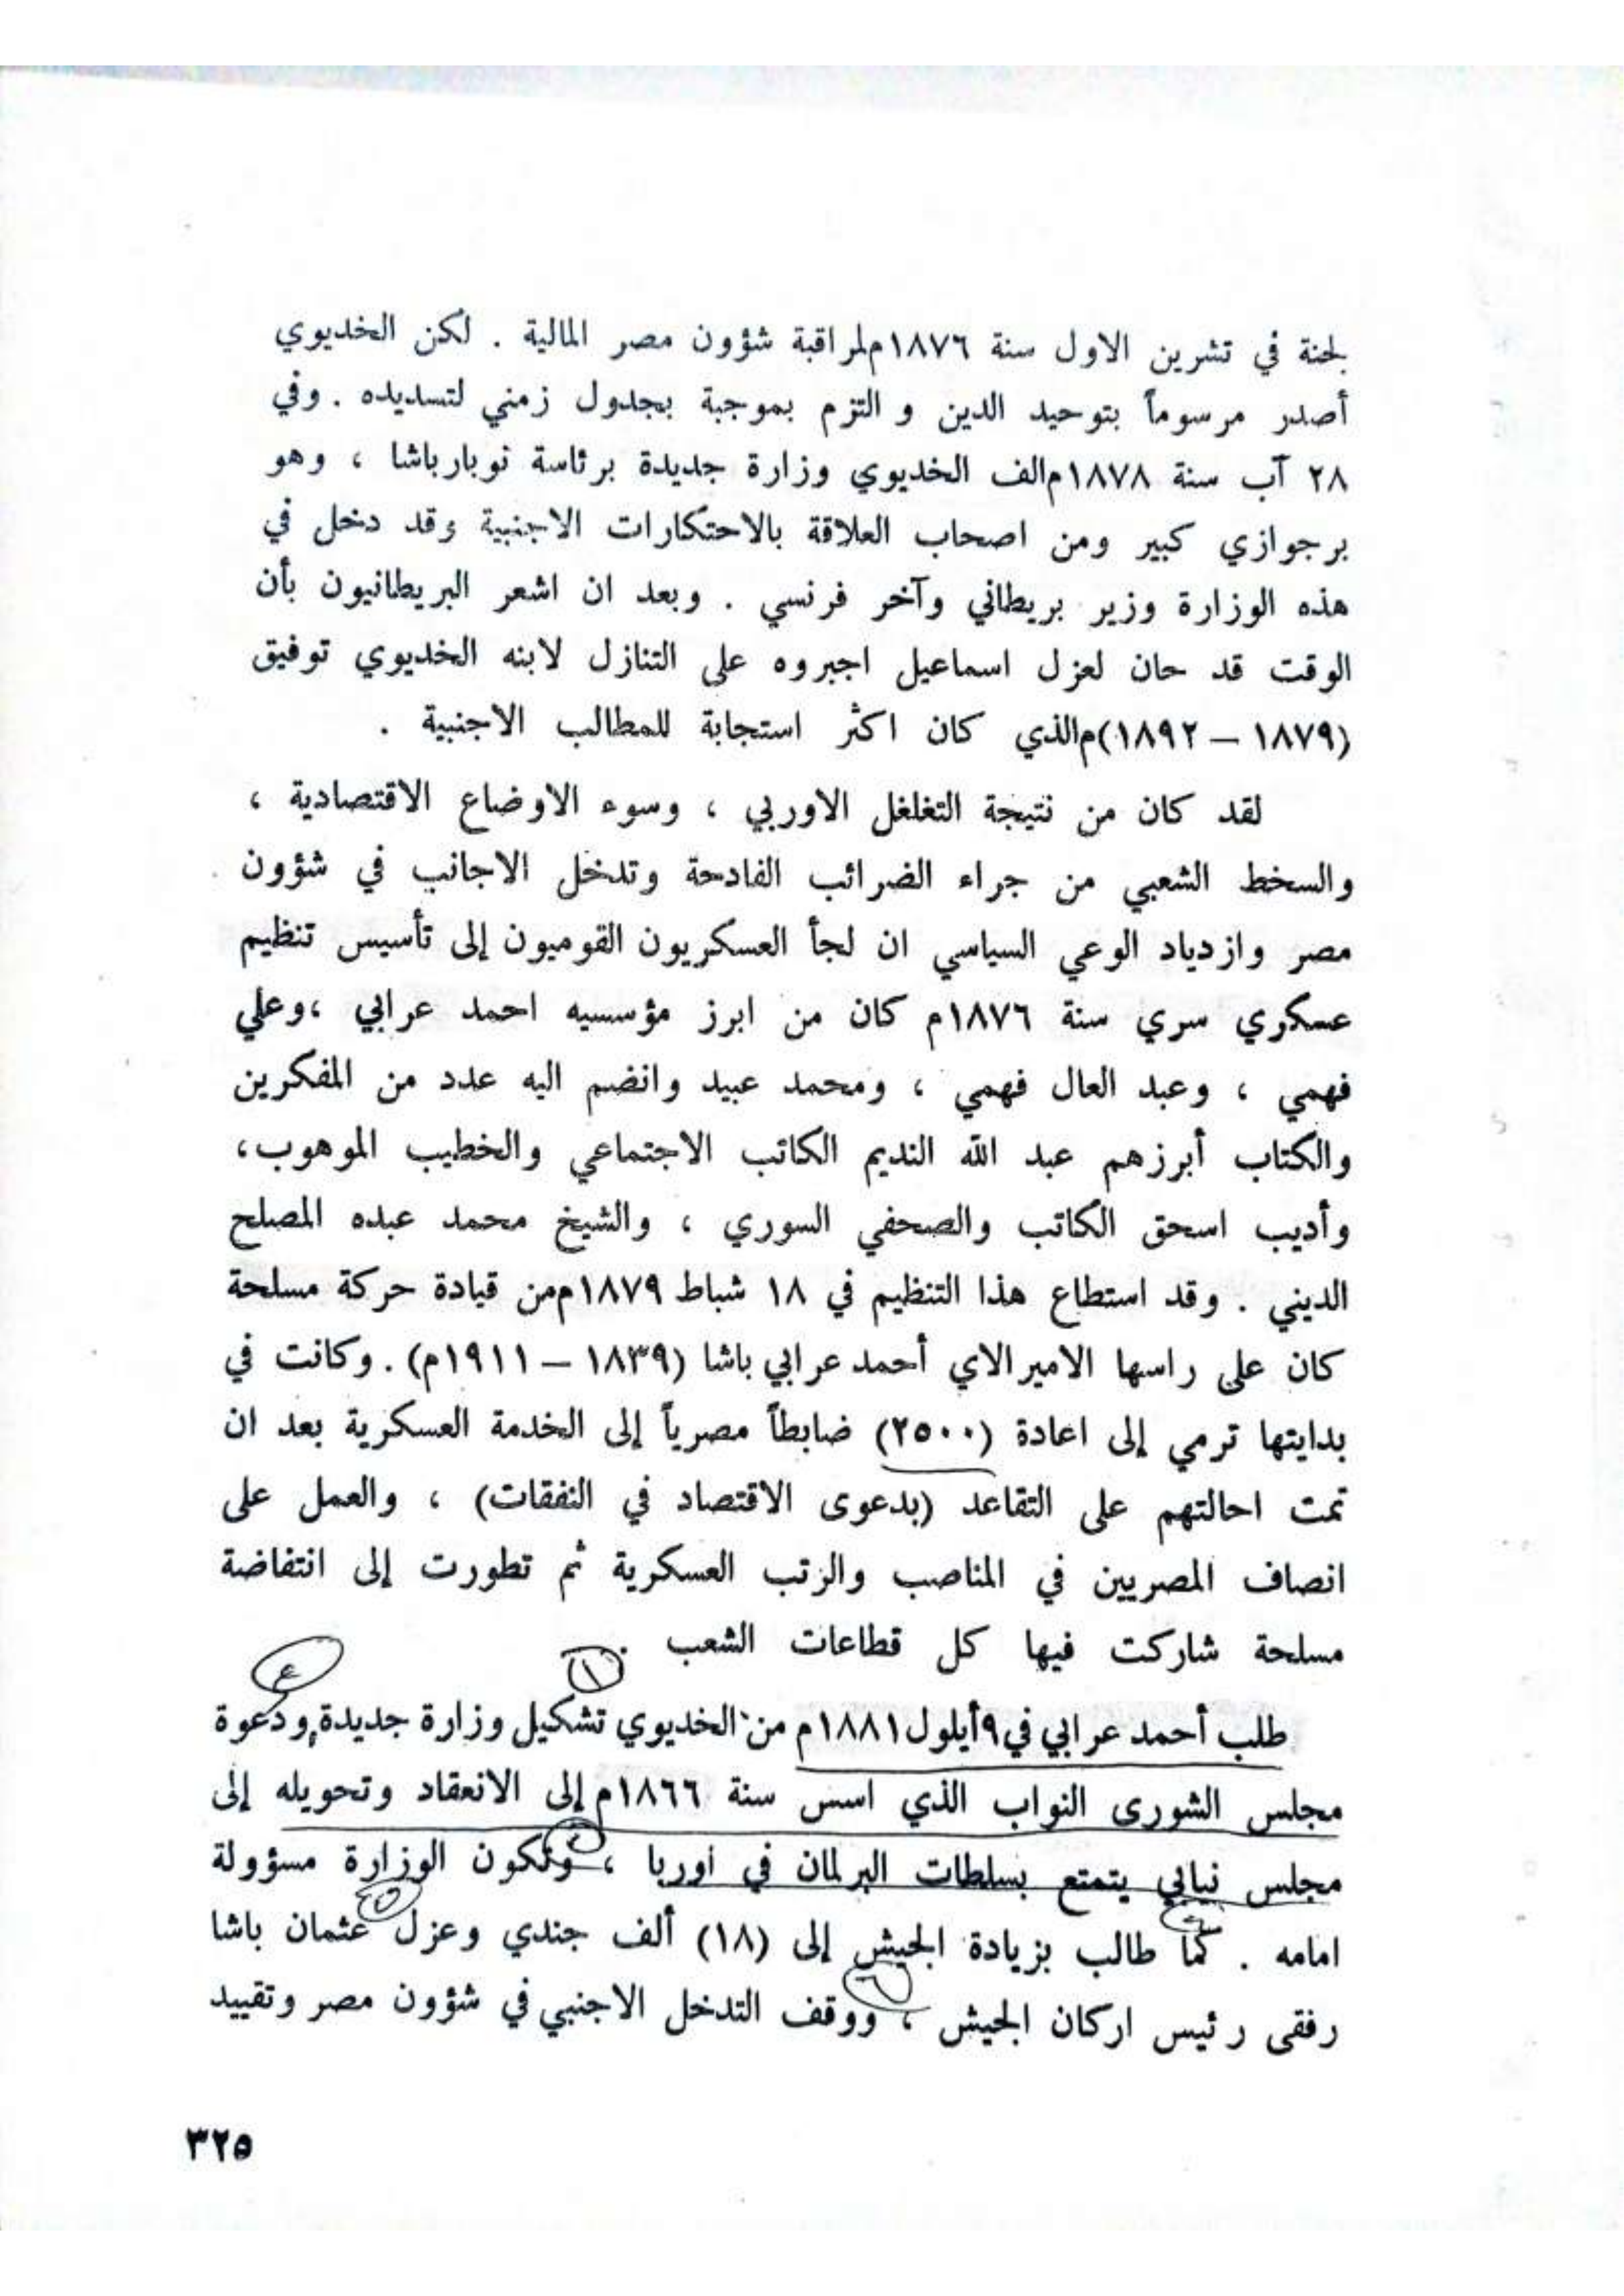 لجنة في تشرين الاول سنة ١٨٧٦م لمراقبة شؤون مصر المالية . لكن الخديوي
أصدر مرسوماً بتوحيد الدين و التزم بموجبة بجدول زمني لتسديده . وفي
٢٨ آب سنة ١٨٧٨م الف الخديوي وزارة جديدة برئاسة نوبارباشا ، وهو
برجوازي كبير ومن اصحاب العلاقة بالاحتكارات الاجنبية وقد دخل في
هذه الوزارة وزير بريطاني وآخر فرنسي . وبعد ان اشعر البريطانيون بأن
الوقت قد حان لعزل اسماعيل اجبروه على التنازل لابنه الخديوي توفيق
(١٨٧٩ – ١٨٩٢)م الذي كان اكثر استجابة للمطالب الاجنبية .
لقد كان من نتيجة التغلغل الاوربي ، وسوء الاوضاع الاقتصادية ،
والسخط الشعبي من جراء الضرائب الفادحة وتدخل الاجانب في شؤون
مصر وازدياد الوعي السياسي ان لجأ العسكريون القوميون إلى تأسيس تنظيم
عسكري سري سنة ١٨٧٦م كان من ابرز مؤسسيه احمد عرابي ،وعلي
فهمي ، وعبد العال فهمي ، ومحمد عبيد وانضم اليه عدد من المفكرين
والكتاب أبرزهم عبد الله النديم الكاتب الاجتماعي والخطيب الموهوب،
وأديب اسحق الكاتب والصحفي السوري ، والشيخ محمد عبده المصلح
الديني . وقد استطاع هذا التنظيم في ١٨ شباط ١٨٧٩م من قيادة حركة مسلحة
كان على راسها الاميرالاي أحمد عرابي باشا (١٨٣٩ – ١٩١١م) . وكانت في
بدايتها ترمي إلى اعادة (٢٥٠٠) ضابطاً مصرياً إلى الخدمة العسكرية بعد ان
تمت احالتهم على التقاعد (بدعوى الاقتصاد في النفقات) ، والعمل على
انصاف المصريين في المناصب والرتب العسكرية ثم تطورت إلى انتفاضة
مسلحة شاركت فيها كل قطاعات الشعب .
١ ٤
طلب أحمد عرابي في ٩ أيلول ١٨٨١م من الخديوي تشكيل وزارة جديدة ودعوة
مجلس الشورى النواب الذي اسس سنة ١٨٦٦م إلى الانعقاد وتحويله إلى
مجلس نيابي يتمتع بسلطات البرلمان في اوربا ، وتكون الوزارة مسؤولة
امامه . كما طالب بزيادة الجيش إلى (١٨) ألف جندي وعزل عثمان باشا
رفقى رئيس اركان الجيش ، ووقف التدخل الاجنبي في شؤون مصر وتقييد
٣٢٥